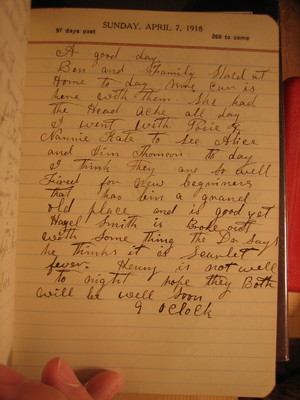 SUNDAY, APRIL 7, 1918
97 days past
268 to come
A good day
Ben and Family Staid at
Home to day mrs is
here with them She had
the Head Ache all day
I went with Price &
Nannie Kate to see Alice
and Jim Thomson to day
I think they are so well
Fixed for new beginners
that has bin a grand
old place and is good yet
Hazel Smith is Broke out
with Some thing the Dr Says
he thinks it is Scarlet
fever. Henry is not well
to night hope they Both
will be well Soon
9 oClock